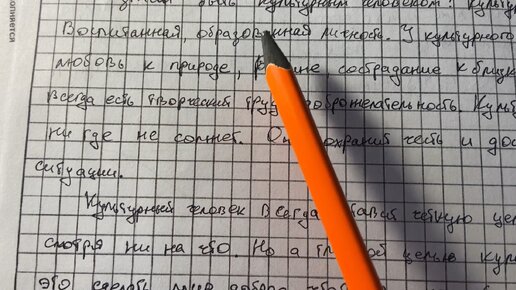 быть культурным человеком? Культур
Воспитанная, образованная личность. У культурного
любовь к природе, сострадание к близк
всегда есть творческий труд доброжелательность. Культ
ни где не солжет. сохранит честь и дос
ситуации.
Культурный человек всегда ставит четкую цел
смотря ни на что. Но а целью куль
это сделать